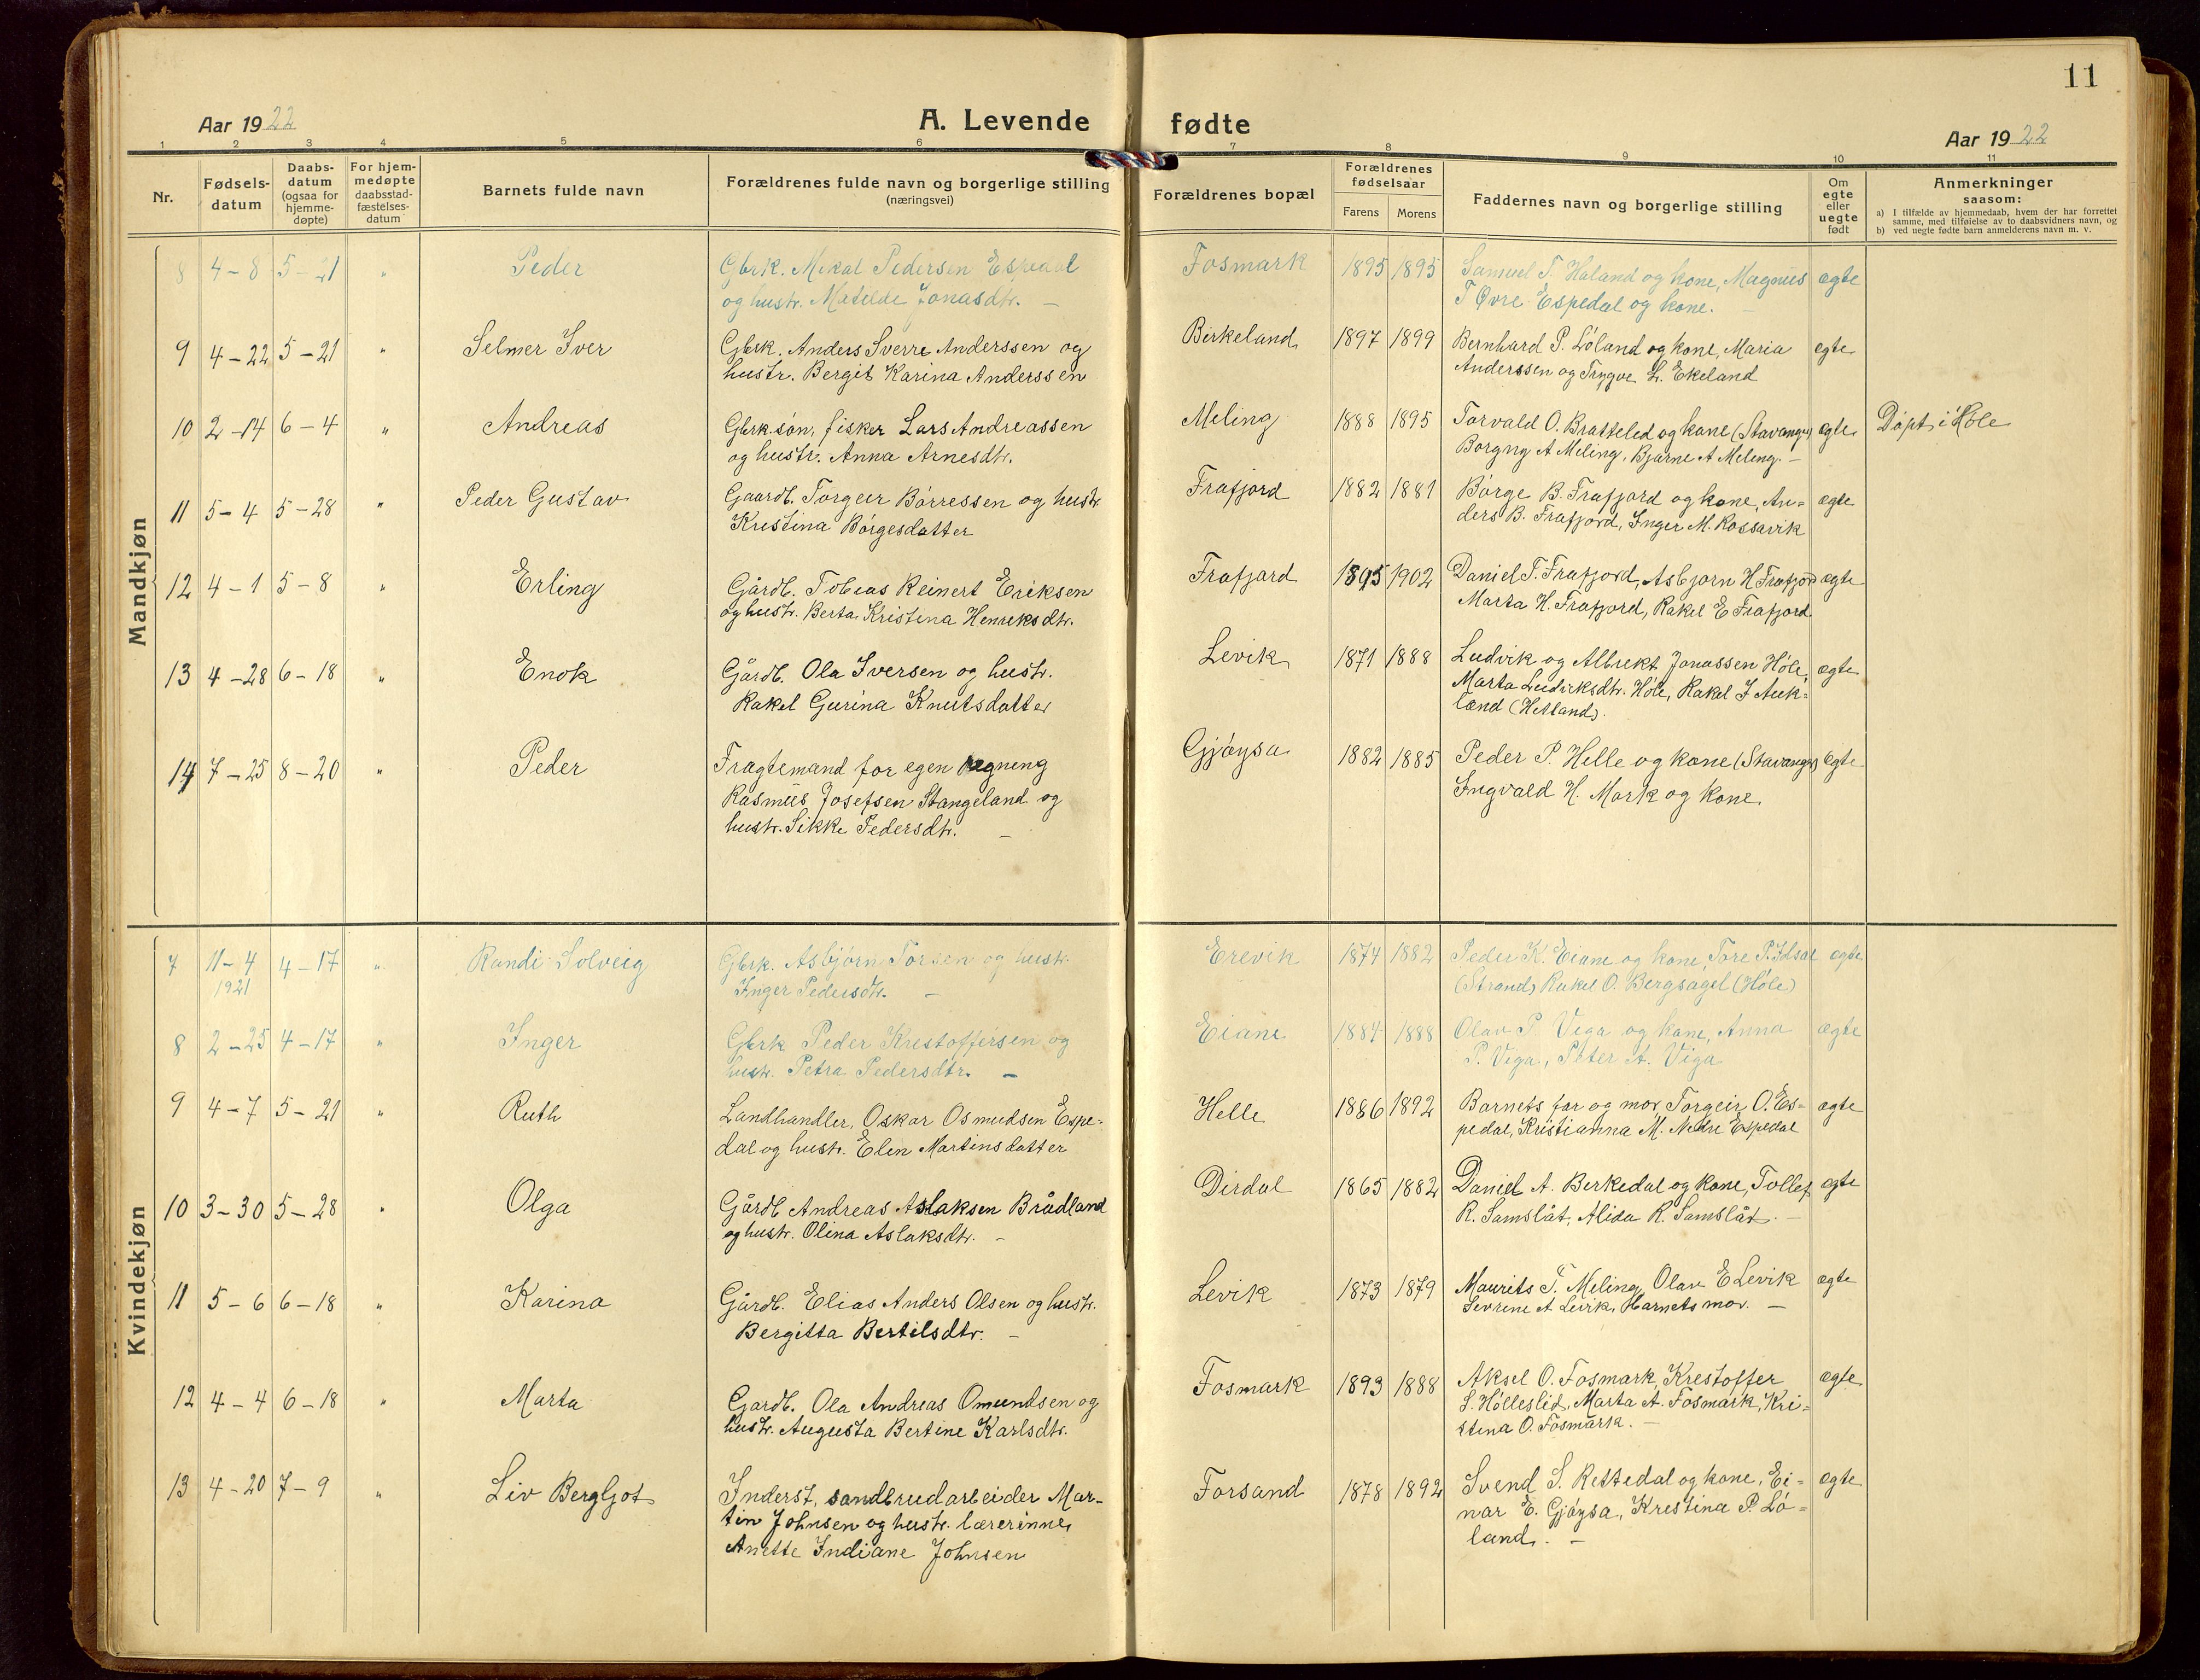 11
Aar 1922
A. Levende fødte
Aar 1922
1 2 3 4 5 6 7 8 9 10 11
Nr.
Fødsels-
datum
Daabs-
datum
(ogsaa for
hjemme-
døpte)
For hjem-
medøpte
daabsstad-
fæstelses-
datum
Barnets fulde navn
Forældrenes fulde navn og borgerlige stilling
(næringsvei)
Forældrenes bopæl
Forældrenes
fødselsaar
Farens Morens
Faddernes navn og borgerlige stilling
Om
egte
eller
uegte
født
Anmerkninger
saasom:
a) I tilfælde av hjemmedaab, hvem der har forrettet
samme, med tilføielse av to daabsvidners navn, og
b) ved uegte fødte barn anmelderens navn m. v.
Mandkjøn
8 4-8 5-21 " Peder Gbrk. Mikal Pedersen Espedal Fosmark 1895 1895 Samuel T. Haland og kone, Magnus ægte
og hustr. Matilde Jonasdtr. — T Øvre Espedal og kone. —
9 4-22 5-21 " Selmer Iver Gbrk. Anders Sverre Anderssen og Birkeland 1897 1899 Bernhard P. Löland og kone, Maria egte
hustr. Bergit Karina Anderssen Anderssen og Trygve L. Ekeland
10 2-14 6-4 " Andreas Gbrk.søn, fisker Lars Andreassen Meling 1888 1895 Torvald O. Bratteled og kone (Stavanger) ægte Döpt i Höle
og hustr. Anna Arnesdtr. Borgny A Meling, Bjarne A Meling. —
11 5-4 5-28 " Peder Gustav Gaardb. Torgeir Börressen og hustr. Frafjord 1882 1881 Börge B. Frafjord og kone, An= ægte
Kristina Börgesdatter ders B. Frafjord, Inger M. Rossavik
12 4-1 5-8 " Erling Gårdb. Tobias Reinert Eriksen Frafjord 1895 1902 Daniel T. Frafjord, Asbjørn H Frafjord ægte
og hustr. Berta Kristina Henriksdtr. Marta H. Frafjord, Rakel E Frafjord
13 4-28 6-18 " Enok Gårdb. Ola Iversen og hustr. Levik 1871 1888 Ludvik og Albrekt Jonassen Höle, ægte
Rakel Gurina Knutsdatter Marta Ludviksdtr. Höle, Rakel J Auk=
land (Hetland).
14 7-25 8-20 " Peder Fragtemand for egen regning Gjöysa 1882 1885 Peder P. Helle og kone (Stavanger) Egte
Rasmus Josefsen Stangeland og Ingvald H. Mark og kone.
hustr. Sikke Pedersdtr. —
Kvindekjøn
7 11-4 4-17 " Randi Solveig Gbrk. Asbjørn Torsen og hustr. Erevik 1874 1882 Peder K. Eiane og kone, Tore P. Idsøe ægte
1921 Inger Pedersdtr. — (Strand) Rakel O. Bergsagel (Höle)
8 2-25 4-17 " Inger Gbrk Peder Kristoffersen og Eiane 1884 1888 Olav P. Viga og kone, Anna ægte
hustr. Petra Pedersdtr. — P. Viga, Peter A. Viga
9 4-7 5-21 " Ruth Landhandler, Oskar Osmudsen Espe= Helle 1886 1892 Barnets far og mor, Torgeir O. Es= ægte
dal og hustr. Elen Martinsdatter pedal, Kristianna M. Nedre Espedal
10 3-30 5-28 " Olga Gårdb Andreas Aslaksen Brådland Dirdal 1865 1882 Daniel A. Berkedal og kone, Tollef ægte
og hustr. Olina Aslaksdtr. — R. Samslåt, Alida R. Samslåt. —
11 5-6 6-18 " Karina Gårdb. Elias Anders Olsen og hustr. Levik 1873 1879 Maurits T. Meling, Olav E Levik ægte
Bergitta Bertilsdtr. — Sevrine A Levik, Barnets mor. —
12 4-4 6-18 " Marta Gardb. Ola Andreas Omundsen og Fosmark 1893 1888 Aksel O. Fosmark, Kristoffer ægte
hustr. Augusta Bertine Karlsdtr. S. Hölleslid, Marta A. Fosmark, Kri=
stina O. Fosmark. —
13 4-20 7-9 " Liv Bergljot Inderst, sandbrudarbeider Mar- Forsand 1878 1892 Svend S. Rettedal og kone, Ei= ægte
tin Johnsen og hustr. lærerinne nar E. Gjöysa, Kristina P. Lö=
Anette Indiane Johnsen land. —